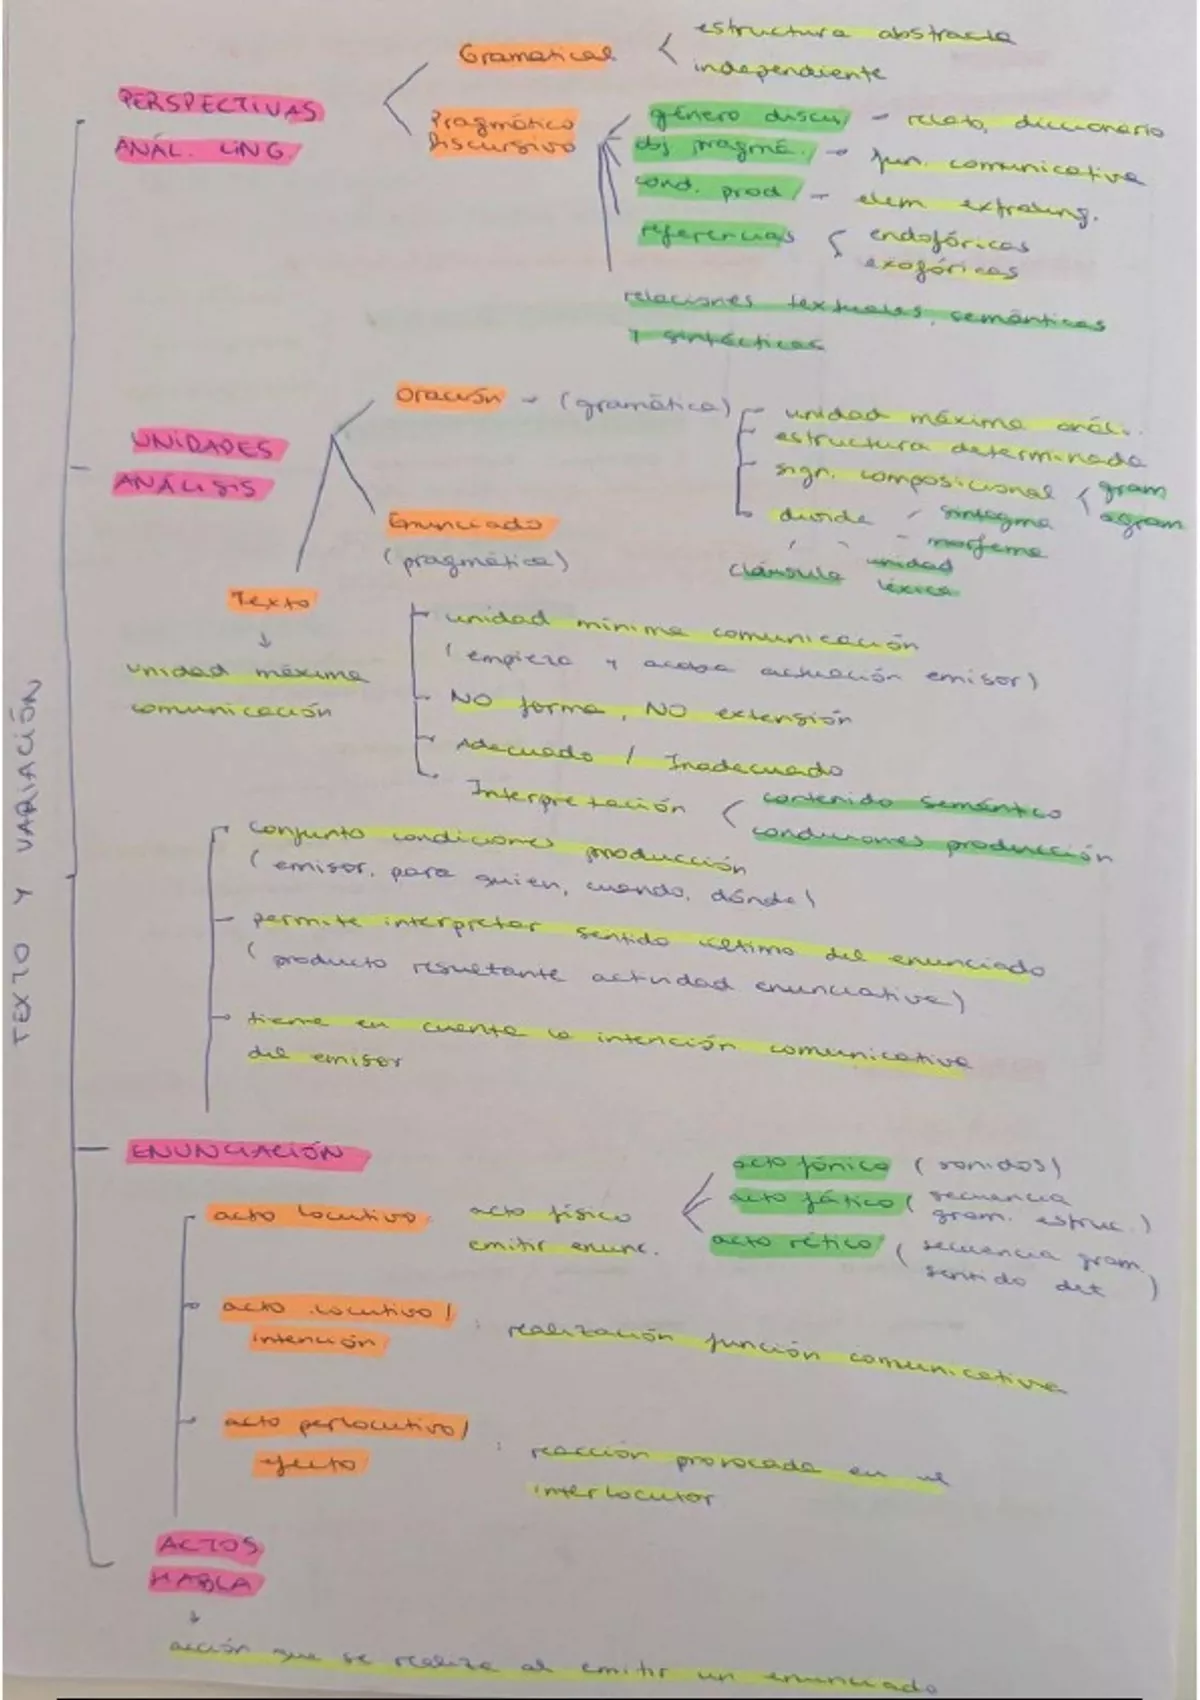 TEXTO Y VARIACIÓN
PERSPECTIVAS
ANÁL. LING.
Gramatical
estructura abstracta
independiente
Pragmático
Discursivo
género discur/ → relato, diccionario
obj pragmá./ → fun. comunicativa
cond. prod/ → elem extraling.
referencias
endofóricas
exofóricas
relaciones textuales, semánticas
y sintácticas
UNIDADES
ANÁLISIS
Oración → (gramática)
unidad máxima anál.
estructura determinada
sign. composicional
gram
agram
divide
sintagma
morfema
unidad
léxica
cláusula
Enunciado
(pragmática)
unidad mínima comunicación
(empieza y acaba actuación emisor)
NO forma, NO extensión
Adecuado / Inadecuado
Interpretación
contenido semántico
condiciones producción
Texto
↓
unidad máxima
comunicación
conjunto condiciones producción
(emisor, para quien, cuando, dónde)
permite interpretar sentido último del enunciado
(producto resultante actividad enunciativa)
tiene en cuenta la intención comunicativa
del emisor
ENUNCIACIÓN
acto locutivo: acto físico
emitir enunc.
acto fónico (sonidos)
acto fático (secuencia
gram. estruc.)
acto rético (secuencia gram.
sentido det)
acto ilocutivo/
intención
: realización función comunicativa
acto perlocutivo/
efecto
: reacción provocada en el
interlocutor
ACTOS
HABLA
↓
acción que se realiza al emitir un enunciado